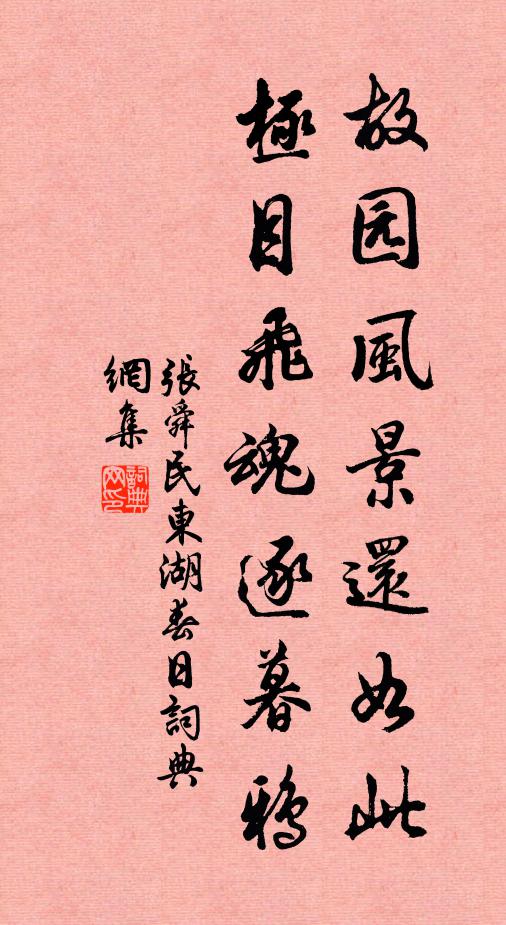 故园風景還如此
極目飛魂逐暮鴉
張舜民東湖春日詞典
網集
詞典網印